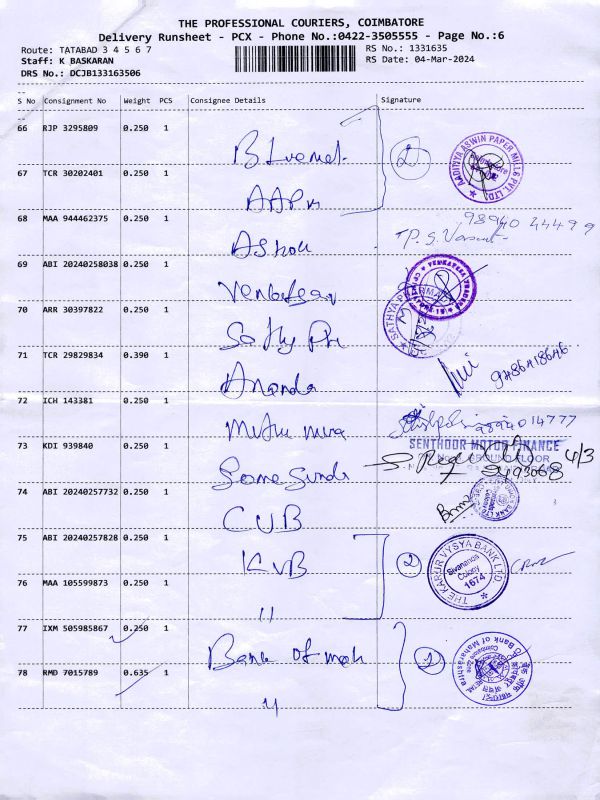 THE PROFESSIONAL COURIERS, COIMBATORE
Delivery Runsheet - PCX - Phone No.:0422-3505555 - Page No.:6
Route: TATABAD 3 4 5 6 7
RS No.: 1331635
Staff: K BASKARAN
RS Date: 04-Mar-2024
DRS No.: DCJB133163506
S No Consignment No Weight PCS Consignee Details Signature
66 RJP 3295809 0.250 1
2
AADITIYA ASWIN PAPER MILLS PVT. LTD.
67 TCR 30202401 0.250 1
68 MAA 944462375 0.250 1
Ashok
98940 44499
69 ABI 20240258038 0.250 1
70 ARR 30397822 0.250 1
Sathy
SATHYA
71 TCR 29829834 0.390 1
Ananda
72 ICH 143381 0.250 1
9894014777
73 KDI 939840 0.250 1
SENTHOOR MOTOR FINANCE
4/3
74 ABI 20240257732 0.250 1
CUB
75 ABI 20240257828 0.250 1
KVB
2
THE KARUR VYSYA BANK LTD.
Sivananda
Colony
1674
76 MAA 105599873 0.250 1
"
77 IXM 505985867 0.250 1
Bank of mah
2
Bank of Maharashtra
Coimbatore Zone
78 RMD 7015789 0.635 1
"